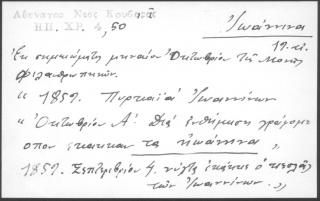 Αθεναγος Νεος Κουβαρᾶς
ΗΠ. ΧΡ. 4, 50
Ἰωάννινα
19. αι.
Ἐκ σημειώματος μηναίου Ὀκτωβρίου τῆς Μονῆς
Φιλανθρωπηνῶν.
" 1859. Πυρκαϊά Ἰωαννίνων
" Ὀκτωβρίου Α΄. Διά ἐνθύμησιν γράφομεν
οπου εκαικαν τα Ηωάννινα,
1859. Σεπτεμβρίου 4. νύχτα ἐκάηκε ὁ
τῶν Ἰωαννίνων. "